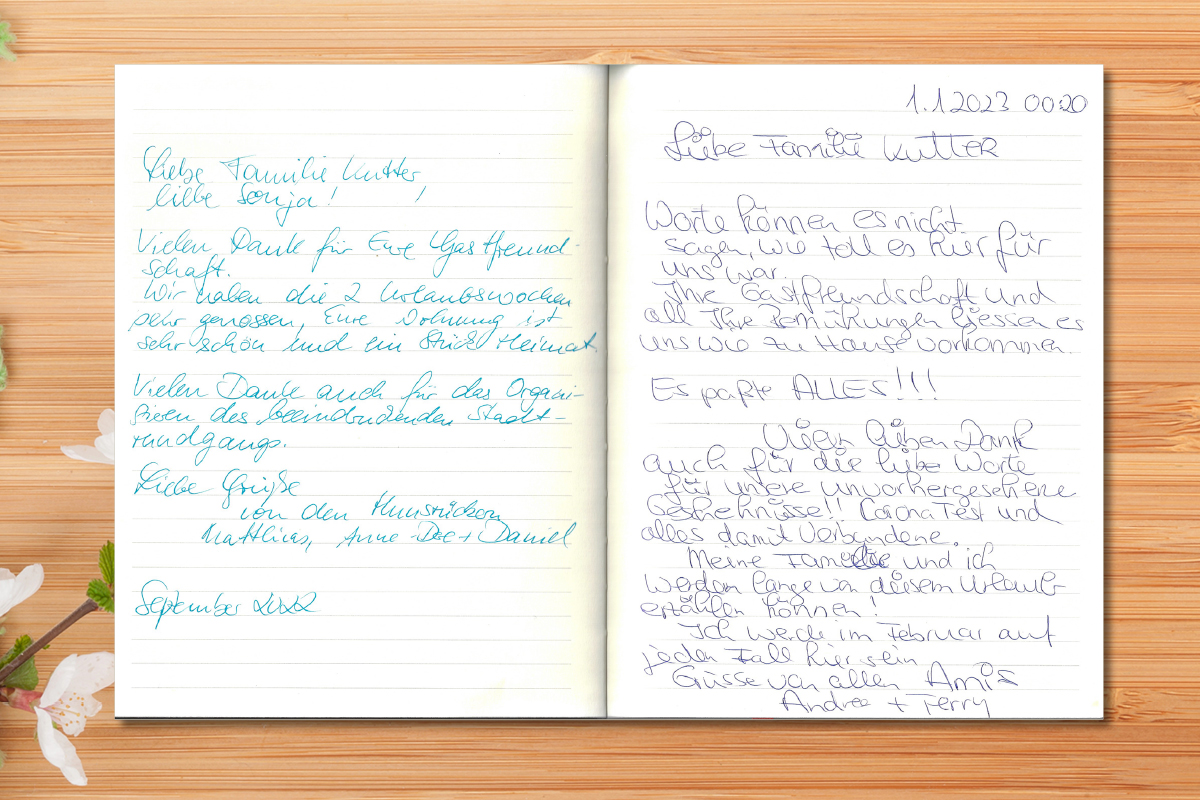 Liebe Familie Kutter,
liebe Sonja!
Vielen Dank für Eure Gastfreund-
schaft.
Wir haben die 2 Urlaubswochen
sehr genossen, Eure Wohnung ist
sehr schön und ein Stück Heimat
Vielen Dank auch für das Organi-
sieren des beeindruckenden Stadt-
rundgangs.
Liebe Grüße
von den Hunsrückern
Matthias, Anne + Daniel
September 2022
1.1.2023 00:20
Liebe Familie Kutter
Worte können es nicht
sagen, wie toll es hier für
uns war.
Ihre Gastfreundschaft und
all Ihre Bemühungen liessen es
uns wie zu Hause vorkommen.
Es paßte ALLES!!!
Vielen lieben Dank
auch für die liebe Worte
für unsere unvorhergesehene
Geschehnisse!! Corona Test und
alles damit Verbundene.
Meine Familie und ich
werden lange von diesem Urlaub
erzählen können!
Ich werde im Februar auf
jeden Fall hier sein
Grüsse von allen Amis
Andrea + Terry